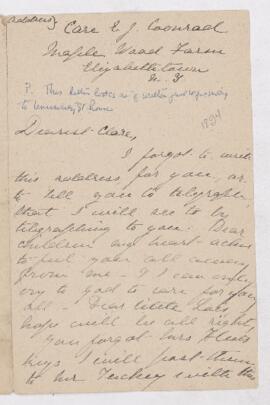 (address)
Care E J. Coonrad
Maple Wood Farm
Elizabethtown
N. Y
P. This letter looks as if written just
to
1894
Dearest Clare,
I forgot to write
this address for you, or
to tell you to telegraph
that I will see to by
telegraphing to you. Dear
children my heart aches
to feel your all away
from me - & I can only
cry to God to care for you
all - Dear little
hope will be all right,
You forgot Mrs
keys I will post them
to Mr Tuckey with this